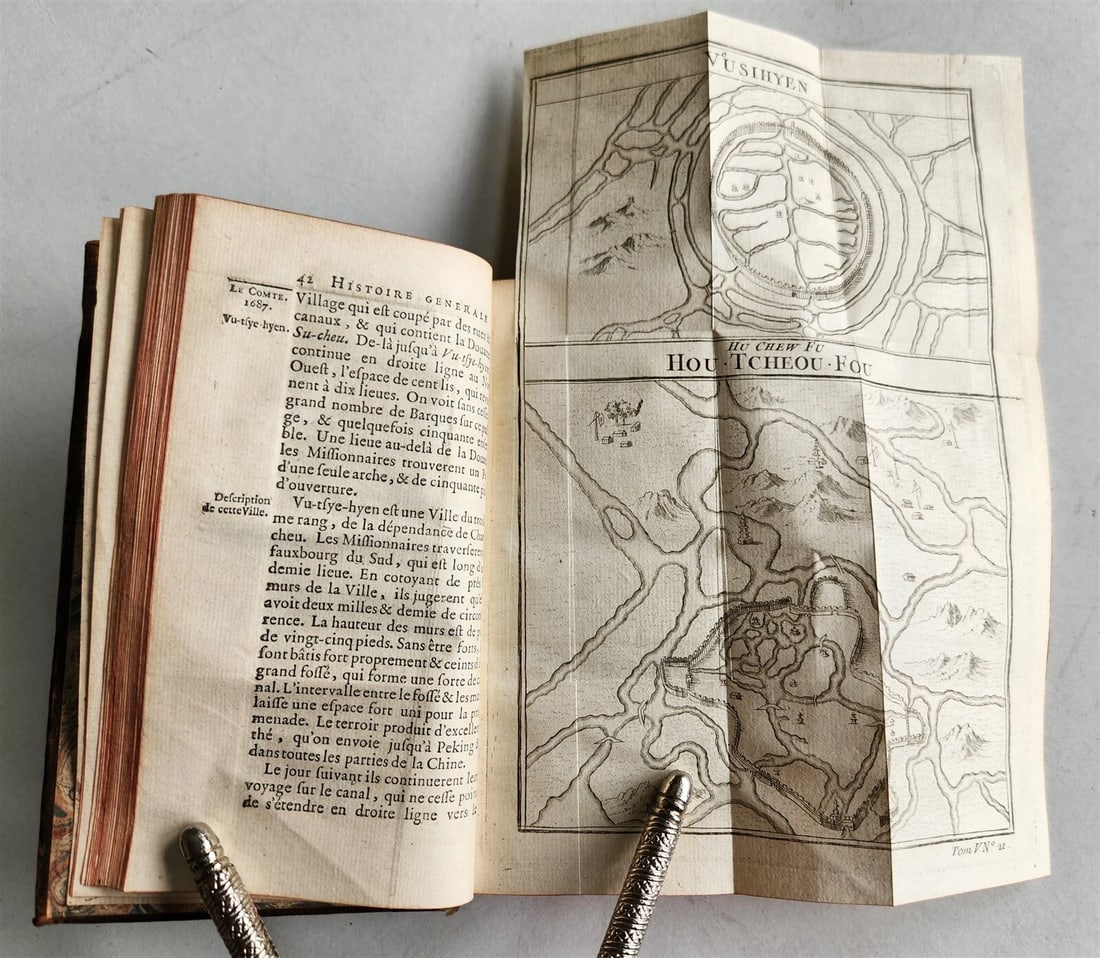 42 HISTOIRE GENERALE
LE COMTE.
1687.
Vu-tſye-hyen.
Village qui eſt coupé par des rues
canaux, & qui contient la Doua
Su-cheu. De-là juſqu'à Vu-tſye-hyen
continue en droite ligne au N
Oueſt, l'eſpace de cent lis, qui re
nent à dix lieues. On voit ſans ceſſe
grand nombre de Barques ſur ce pa
ge, & quelquefois cinquante en
ble. Une lieue au-delà de la Doua
les Miſſionnaires trouverent un P
d'une ſeule arche, & de cinquante
d'ouverture.
Deſcription
de cette Ville.
Vu-tſye-hyen eſt une Ville du troi
me rang, de la dépendance de Cha
cheu. Les Miſſionnaires traverſeren
fauxbourg du Sud, qui eſt long d
demie lieue. En cotoyant de prè
murs de la Ville, ils jugerent qu'e
avoit deux milles & demie de circon
rence. La hauteur des murs eſt de p
de vingt-cinq pieds. Sans être forts,
ſont bâtis fort proprement & ceints d
grand foſſé, qui forme une ſorte de c
nal. L'intervalle entre le foſſé & les m
laiſſe une eſpace fort uni pour la p
menade. Le terroir produit d'excelle
thé, qu'on envoie juſqu'à Peking &
dans toutes les parties de la Chine.
Le jour ſuivant ils continuerent le
voyage ſur le canal, qui ne ceſſe poi
de s'étendre en droite ligne vers l
VUSIHYEN
HU CHEW FU
HOU · TCHEOU · FOU
Tom V Nº 21.